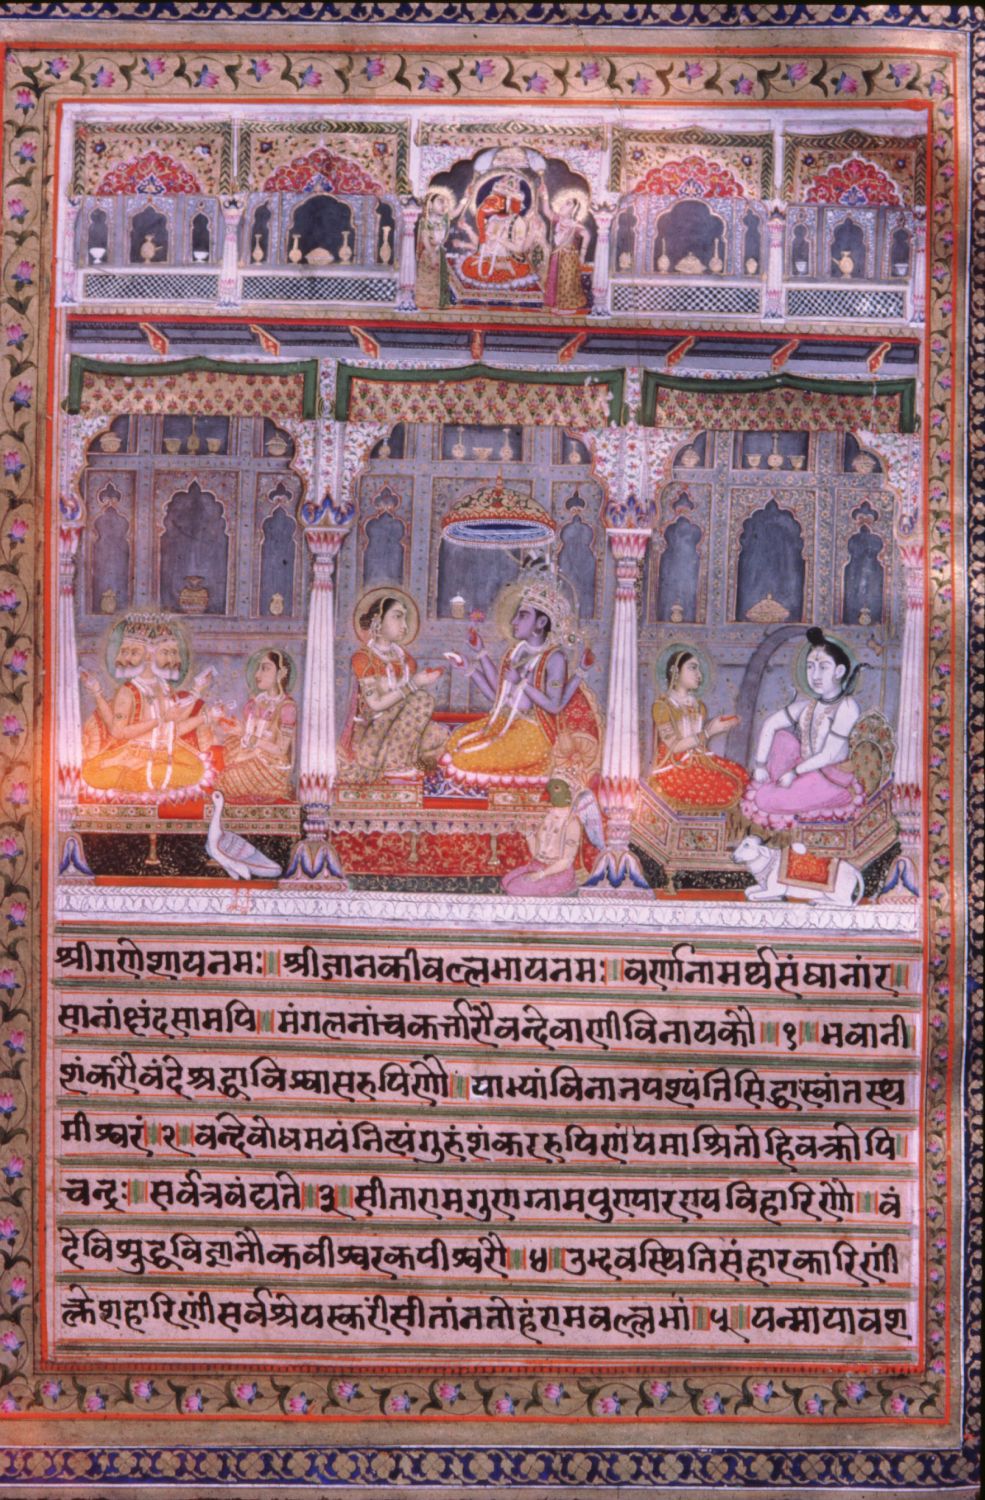 श्रीगणेशायनमः॥श्रीज्ञानकीवल्लभायनमः॥वर्णानामर्थसंघानांर॥
सानांछंदसामपि॥मंगलनांचकर्त्तारौवन्देवाणीविनायकौ॥१॥भवानी
शंकरौवंदेश्रद्धाविश्वासरुपिणौ॥याभ्यांविनानपश्यंतिसिद्धास्वांतस्थ
मीश्वरं॥२॥वन्देवोधमयंनित्यंगुरुंशंकररुपिणंयमाश्रितोहिवक्रोपि॥
चन्द्रः॥सर्वत्रवंद्यते॥३॥सीतारामगुणग्नामपुण्यारण्यविहारिणौ॥वं
देविशुद्धविज्ञानौकवीश्वरकपीश्वरौ॥४॥उद्भवस्थितिसंहारकारिणीं
क्लेशहारिणींसर्वश्रेयस्करींसीतांनतोहंरामवल्लभां॥५॥यन्मायावश